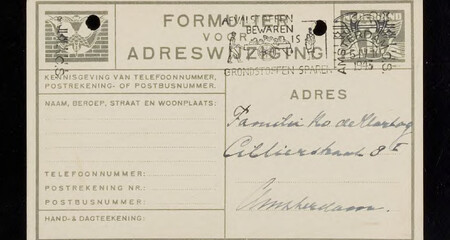 FORMULIER
VOOR
ADRESWIJZIGING
AFVALSTOFFEN
BEWAREN
IS
GRONDSTOFFEN SPAREN
AMSTERDAM
KENNISGEVING VAN TELEFOONNUMMER,
POSTREKENING- OF POSTBUSNUMMER.
NAAM, BEROEP, STRAAT EN WOONPLAATS:
TELEFOONNUMMER:
POSTREKENING NR.:
POSTBUSNUMMER:
HAND- & DAGTEEKENING:
ADRES
Familie Ko de Hartog
Cillierstraat 3 I
Amsterdam.